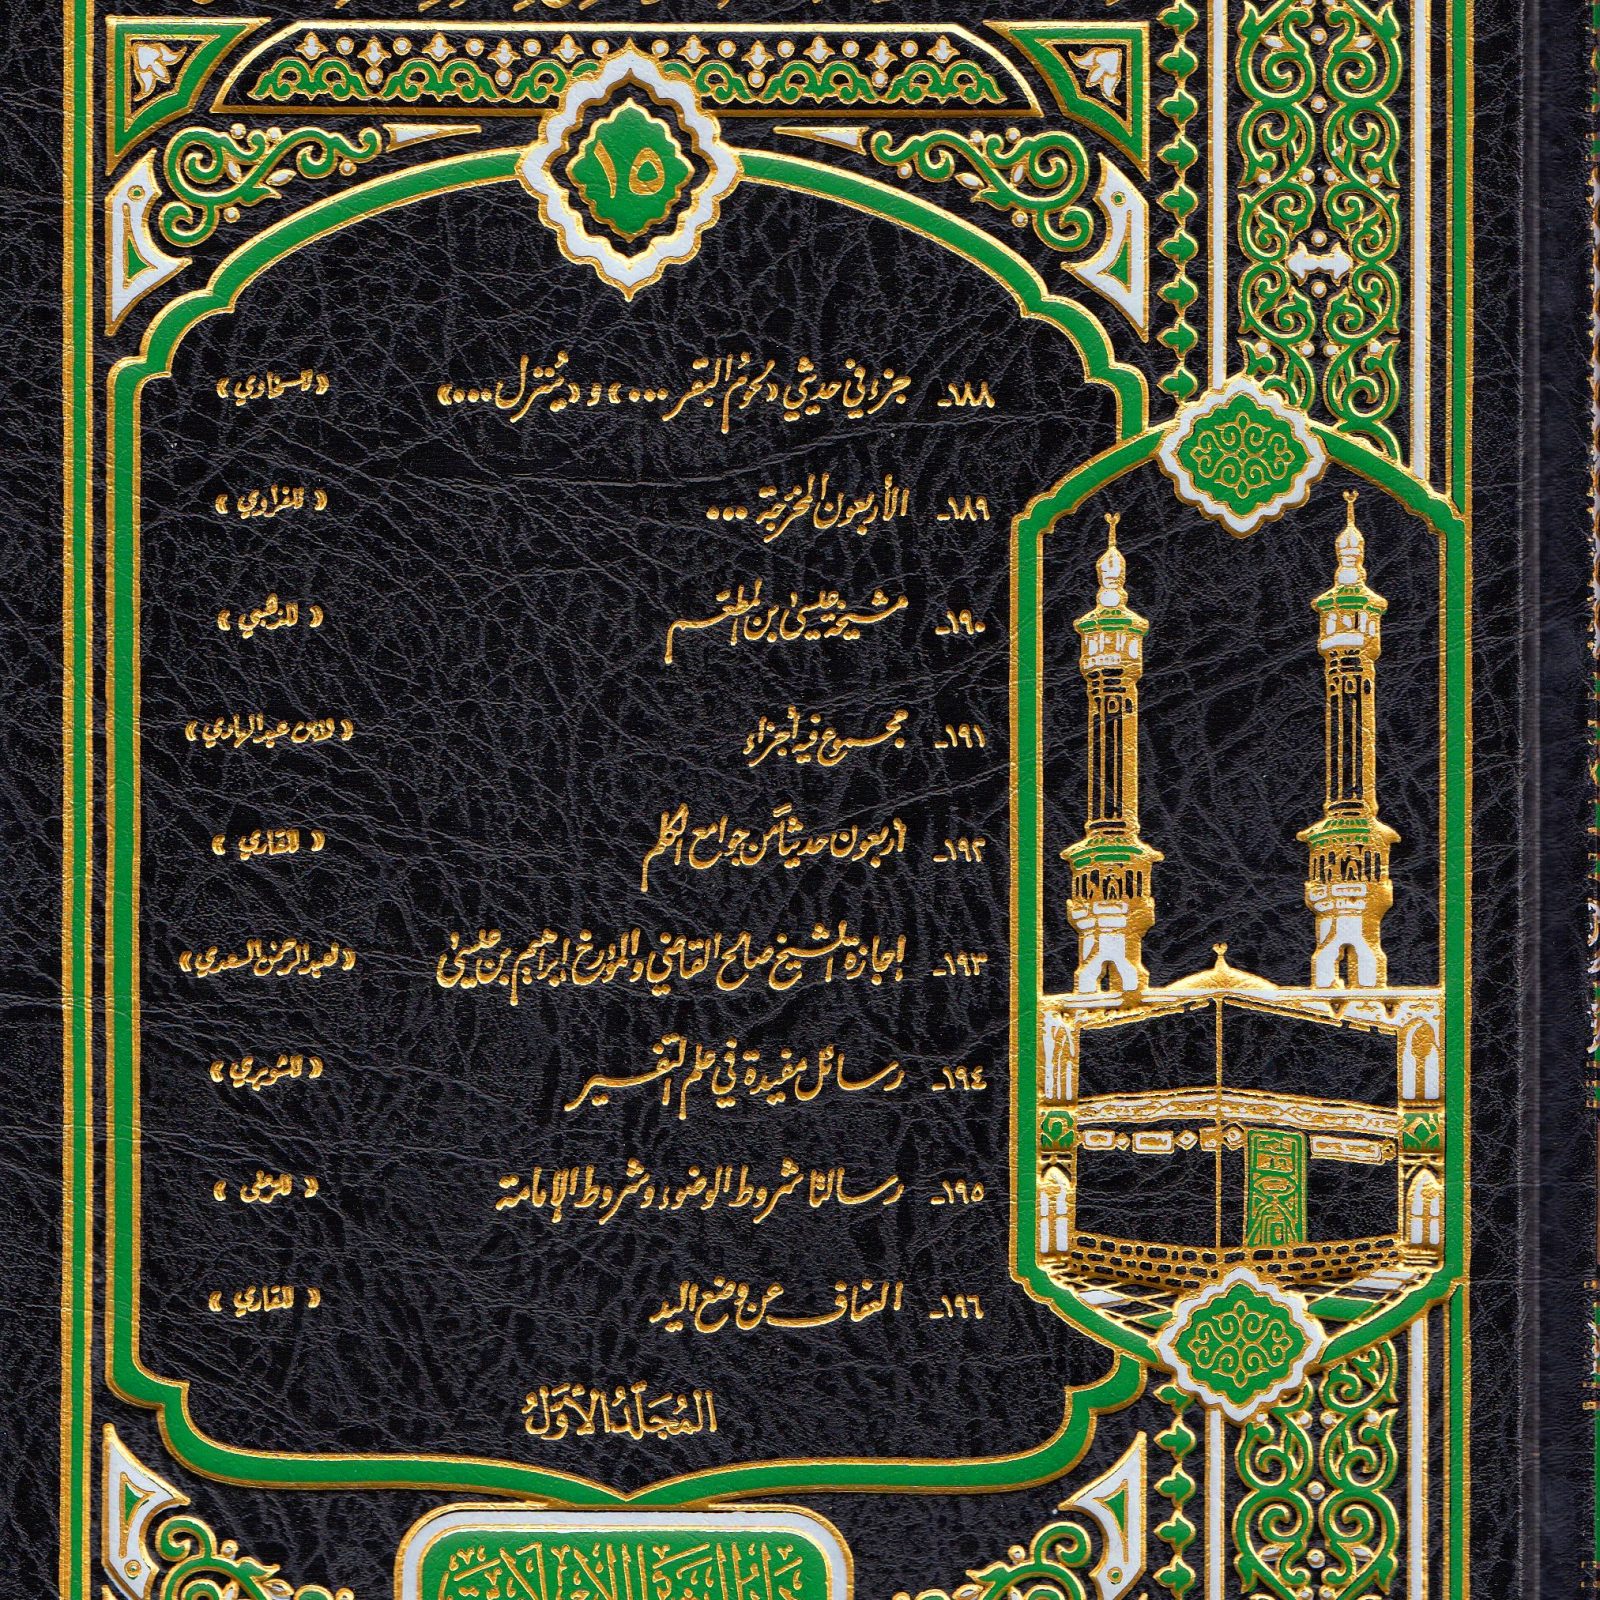 ١٥
١٨٨ـ جزء في حديثي «لحوم البقر ...» و «يُنزل ...» «للسخاوي»
١٨٩ـ الأربعون المخرجة ... «للفراوي»
١٩٠ـ مشيخة عيسى بن المطعم «للذهبي»
١٩١ـ مجموع فيه أجزاء «لابن عبد الهادي»
١٩٢ـ أربعون حديثاً من جوامع الكلم «للقاري»
١٩٣ـ إجازة الشيخ صالح القاضي والمؤرخ إبراهيم بن عيسى «لعبد الرحمن السعدي»
١٩٤ـ رسائل مفيدة في علم التفسير «للشوبري»
١٩٥ـ رسالتا شروط الوضوء وشروط الإمامة «للرملي»
١٩٦ـ العفاف عن وضع اليد «للقاري»
المُجَلَّدُ الأَوَّلُ
دار البشائر الإسلامية